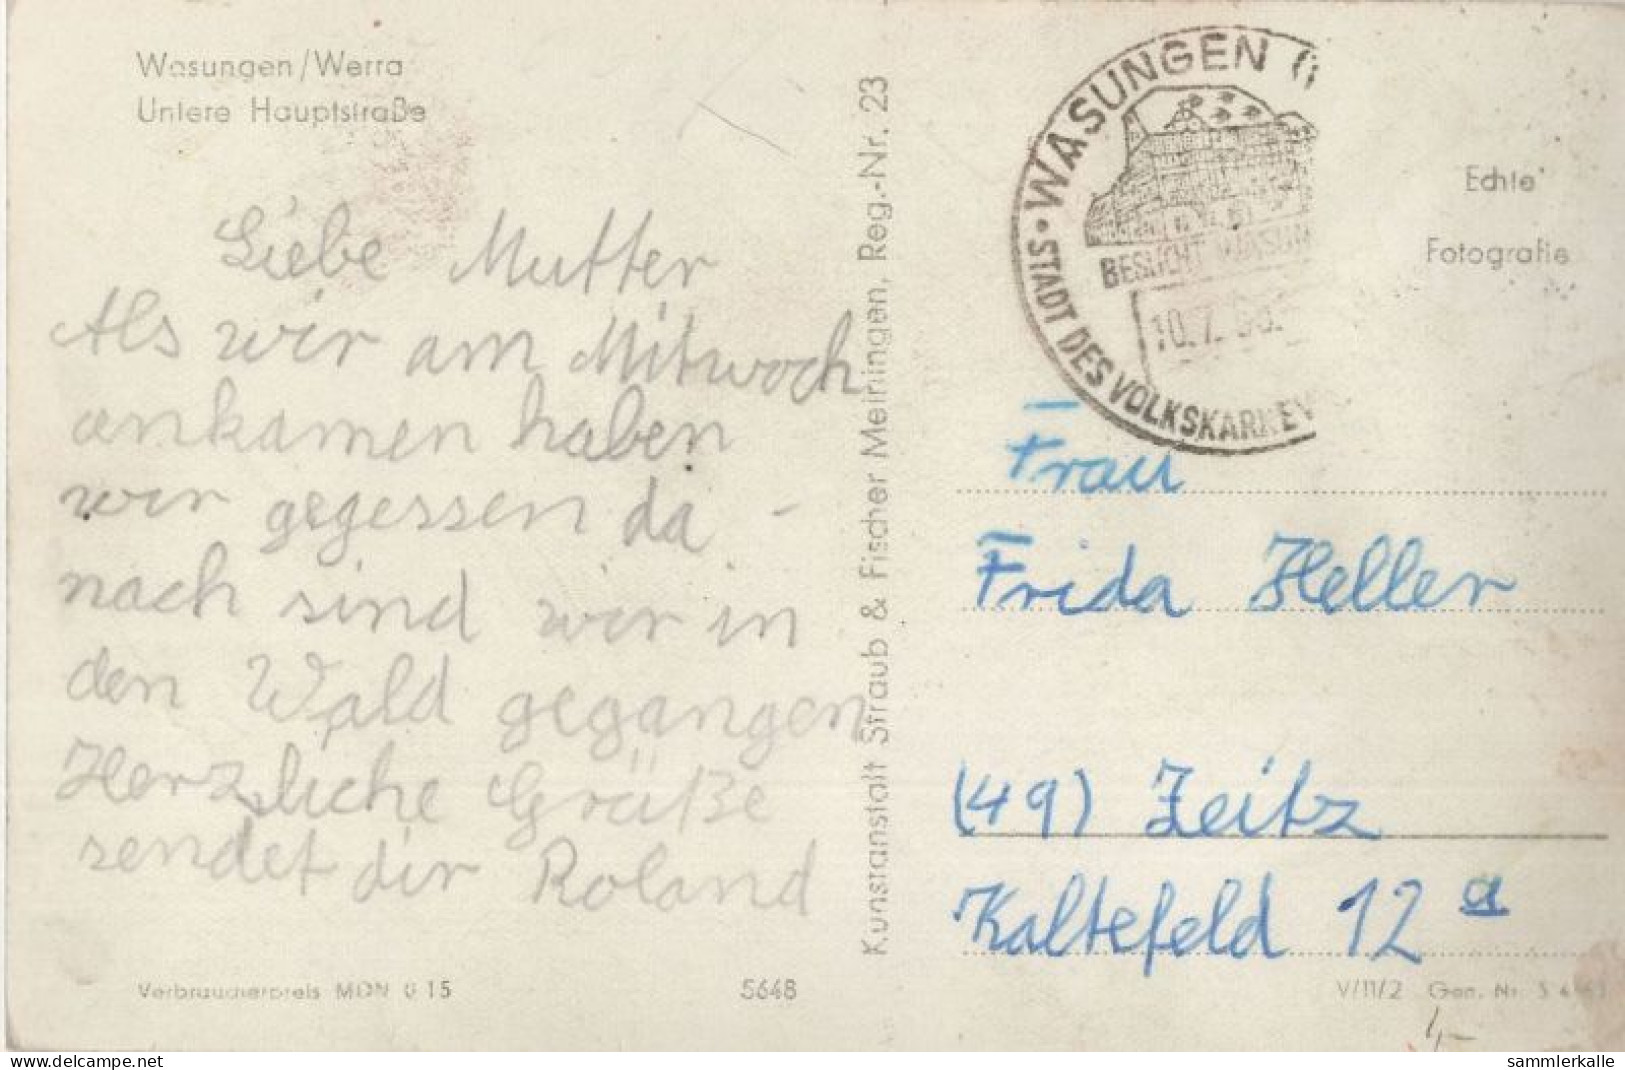 Wasungen/Werra
Untere Hauptstraße
Liebe Mutter
Als wir am Mitwoch
ankamen haben
wir gegessen da -
nach sind wir in
den Wald gegangen
Herzliche Grüße
sendet dir Roland
Verbraucherpreis MDN 0 15
5648
Kunstanstalt Straub & Fischer Meiningen, Reg.-Nr. 23
• WASUNGEN
STADT DES VOLKSKARNEV
BESUCHT WASUN
10.7.
Echte
Fotografie
Frau
Frida Heller
(49) Zeitz
Kaltefeld 12 a
V/11/2 Gen. Nr. S
delcampe.net
sammlerkalle